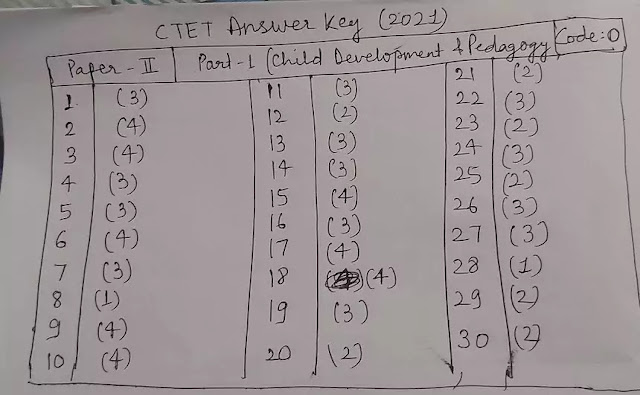 CTET Answer Key (2021)
Paper - II Part-1 (Child Development & Pedagogy Code: O
1 (3) 11 (3) 21 (2)
2 (4) 12 (2) 22 (3)
3 (4) 13 (3) 23 (2)
4 (3) 14 (3) 24 (3)
5 (3) 15 (4) 25 (2)
6 (4) 16 (3) 26 (3)
7 (3) 17 (4) 27 (3)
8 (1) 18 (4) 28 (1)
9 (4) 19 (3) 29 (2)
10 (4) 20 (2) 30 (2)